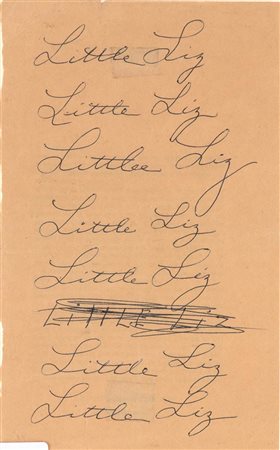 Little Liz
Little Liz
Littlee Liz
Little Liz
Little Liz
LITTLE Liz
Little Liz
Little Liz